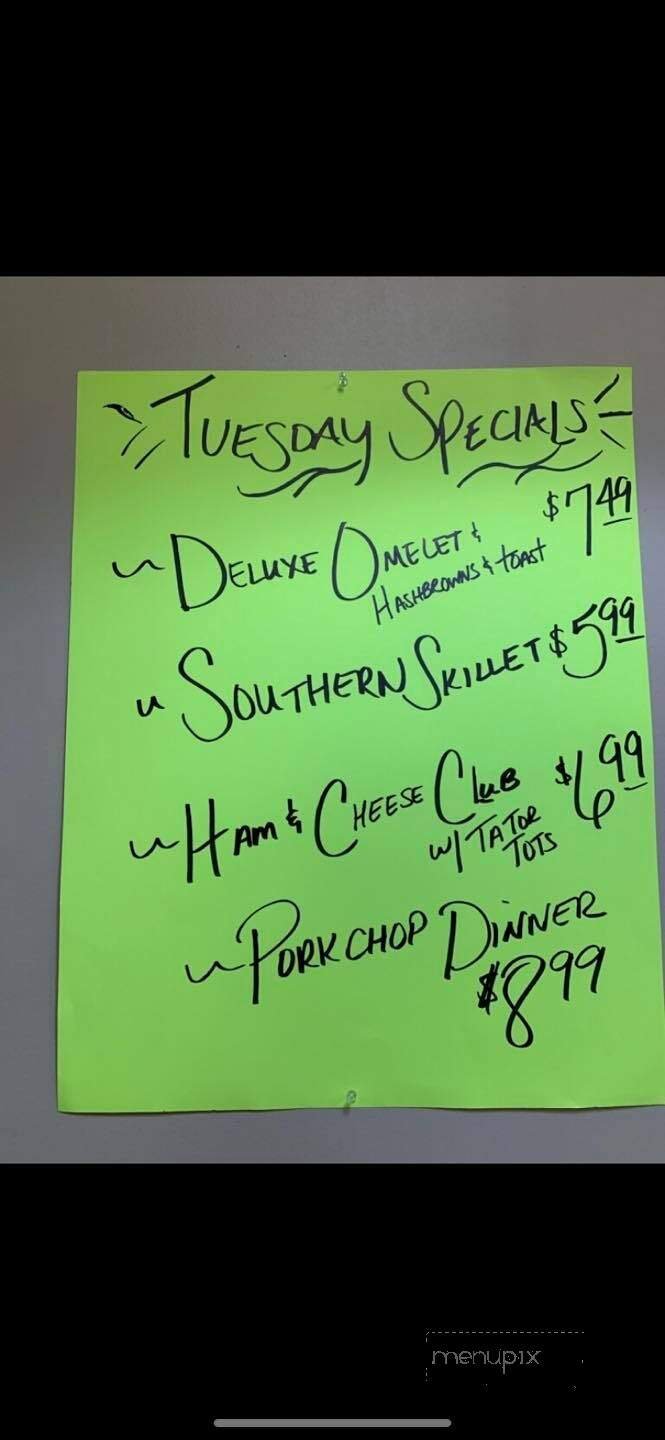 Tuesday Specials
~ Deluxe Omelet & $7.49
Hashbrowns & toast
~ Southern Skillet $5.99
~ Ham & Cheese Club $6.99
w/ Tator
Tots
~ Pork chop Dinner
$8.99
menupix